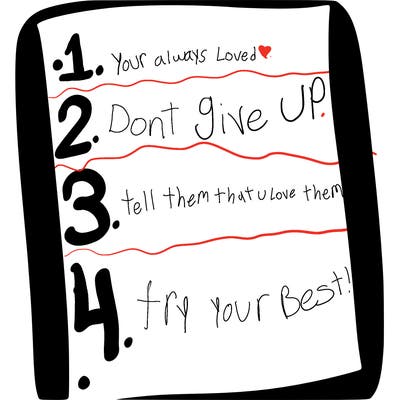 1. Your always Loved
2. Dont give UP.
3. tell them that u Love them
4. try your Best!